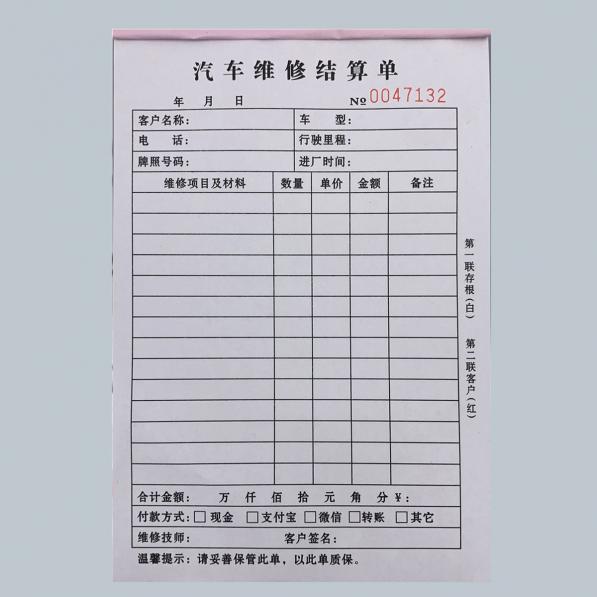 汽车维修结算单
年 月 日 №0047132
客户名称: 车 型:
电 话: 行驶里程:
牌照号码: 进厂时间:
维修项目及材料 数量 单价 金额 备注
合计金额: 万 仟 佰 拾 元 角 分 ¥:
付款方式: 现金 支付宝 微信 转账 其它
维修技师: 客户签名:
温馨提示: 请妥善保管此单, 以此单质保。
第一联存根(白) 第二联客户(红)